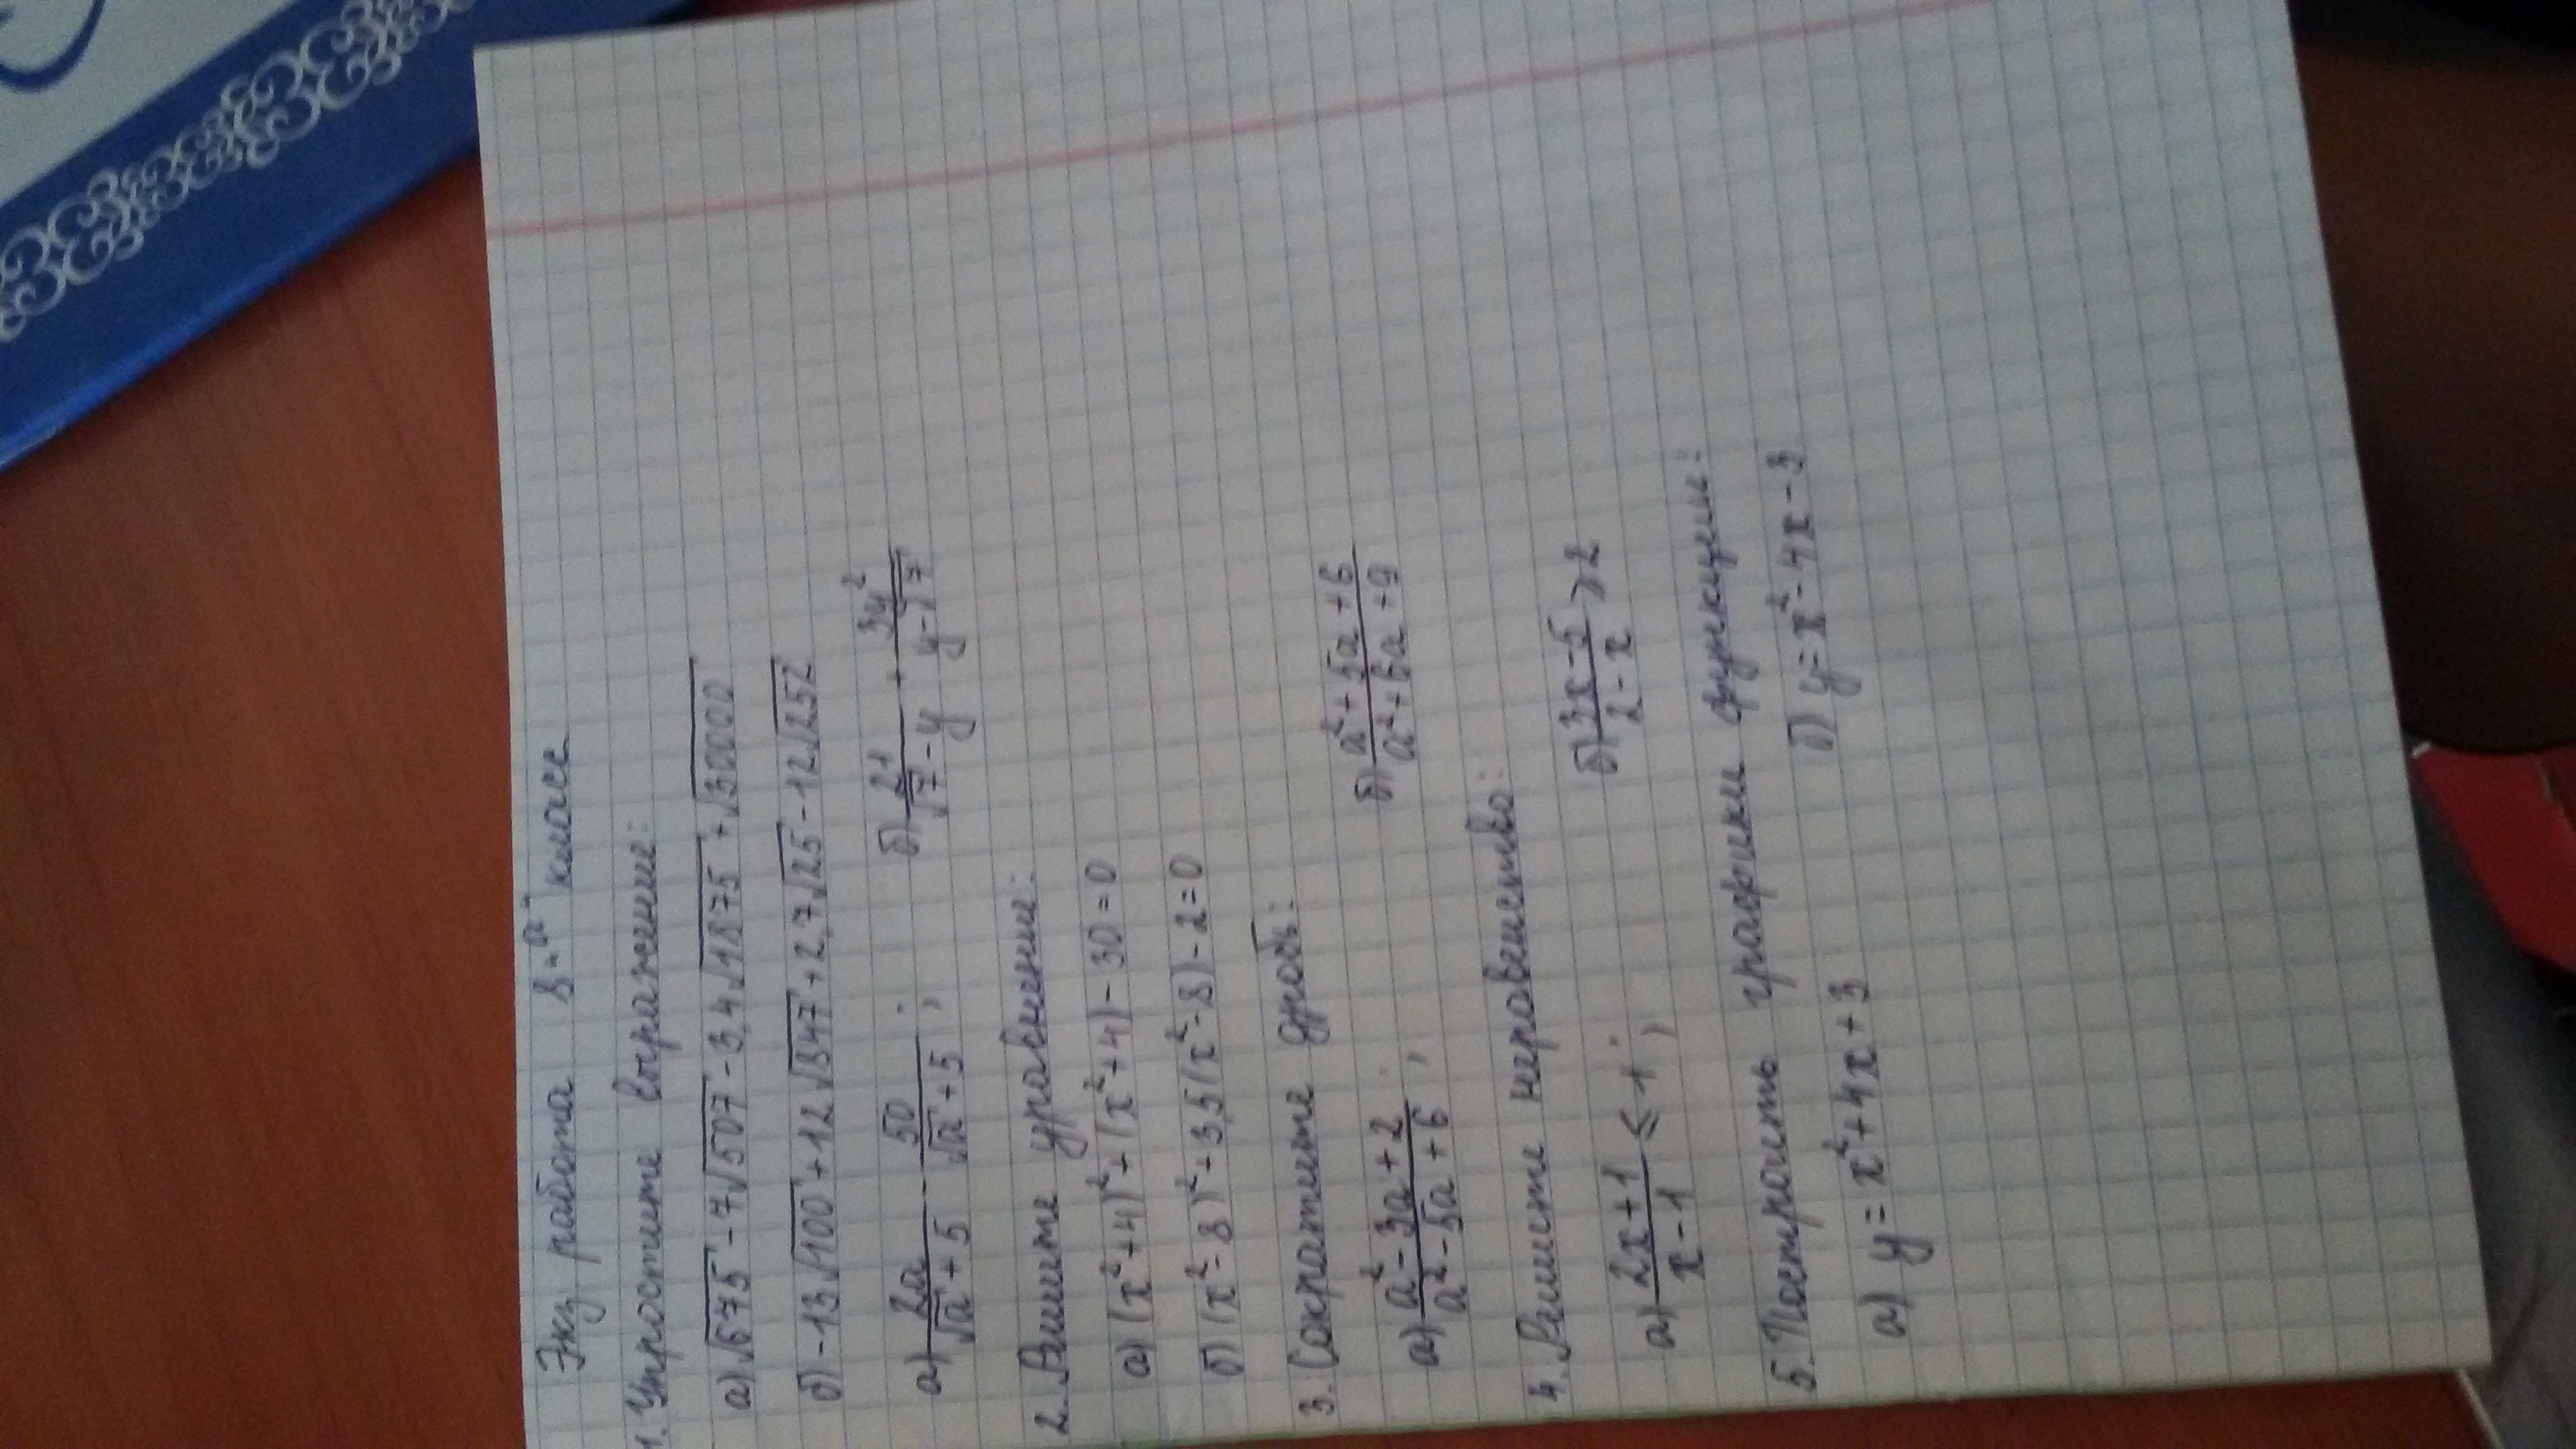 Экз работа 8 "а" класс
1. Упростите выражение:
а) √675 - 7√507 - 3,4√1875 + √30000
б) -13√100 + 12√847 + 2,7√25 - 12√252
а) 2a/(√a + 5) - 50/(√a + 5) ; б) 21/(√7 - y) + 3y²/(y - √7)
2. Решите уравнение:
а) (x² + 4)² + (x² + 4) - 30 = 0
б) (x² - 8)² + 3,5(x² - 8) - 2 = 0
3. Сократите дробь:
а) (a² - 3a + 2)/(a² - 5a + 6) ; б) (a² + 5a + 6)/(a² + 6a + 9)
4. Решите неравенство:
а) (2x + 1)/(x - 1) ≤ 1 ; б) (3x - 5)/(2 - x) ≥ 2
5. Построить графики функции:
а) y = x² + 4x + 3 б) y = x² - 4x - 3